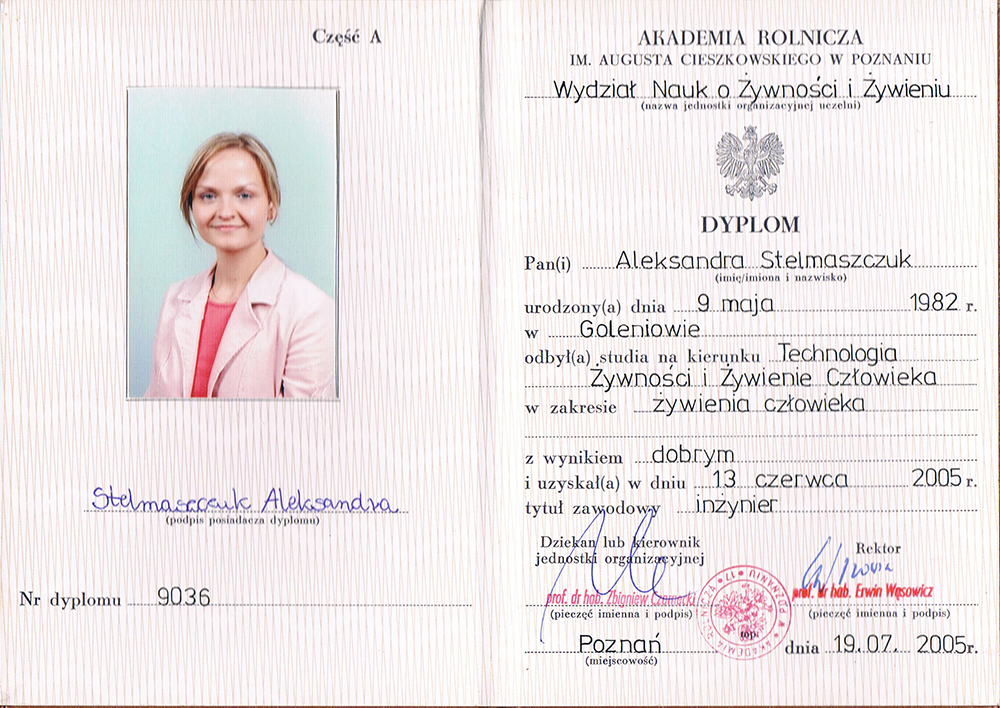 Część A
Stelmaszczuk Aleksandra
(podpis posiadacza dyplomu)
Nr dyplomu 9036
AKADEMIA ROLNICZA
IM. AUGUSTA CIESZKOWSKIEGO W POZNANIU
Wydział Nauk o Żywności i Żywieniu
(nazwa jednostki organizacyjnej uczelni)
DYPLOM
Pan(i) Aleksandra Stelmaszczuk
(imię/imiona i nazwisko)
urodzony(a) dnia 9 maja 1982 r.
w Goleniowie
odbył(a) studia na kierunku Technologia
Żywności i Żywienie Człowieka
w zakresie żywienia człowieka
z wynikiem dobrym
i uzyskał(a) w dniu 13 czerwca 2005 r.
tytuł zawodowy inżynier
Dziekan lub kierownik
jednostki organizacyjnej
prof. dr hab. Zbigniew Czarnecki
(pieczęć imienna i podpis)
Rektor
prof. dr hab. Erwin Wąsowicz
(pieczęć imienna i podpis)
AKADEMIA ROLNICZA W POZNANIU * 17 *
Poznań
(miejscowość)
dnia 19.07. 2005r.